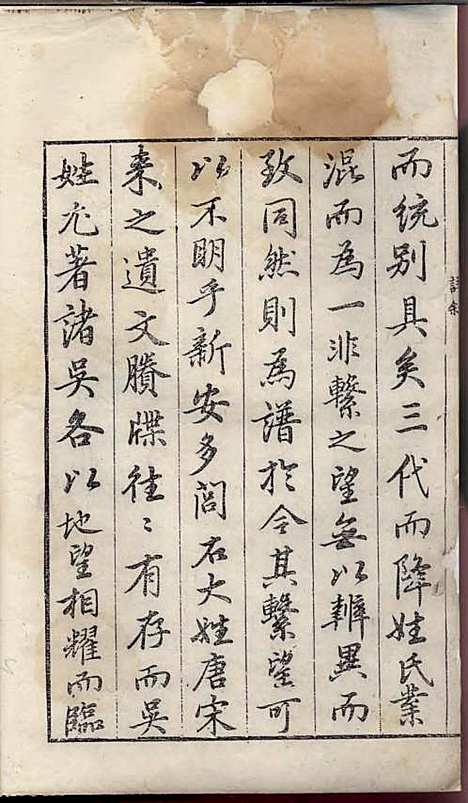 而統别具矣三代而降姓氏業
混而為一非繫之望無以辨異而
致同然則為譜於今其繫望可
以不明乎新安多閥右大姓唐宋
來之遺文賸牒往〻有存而吳
姓尤著諸吳各以地望相耀而臨